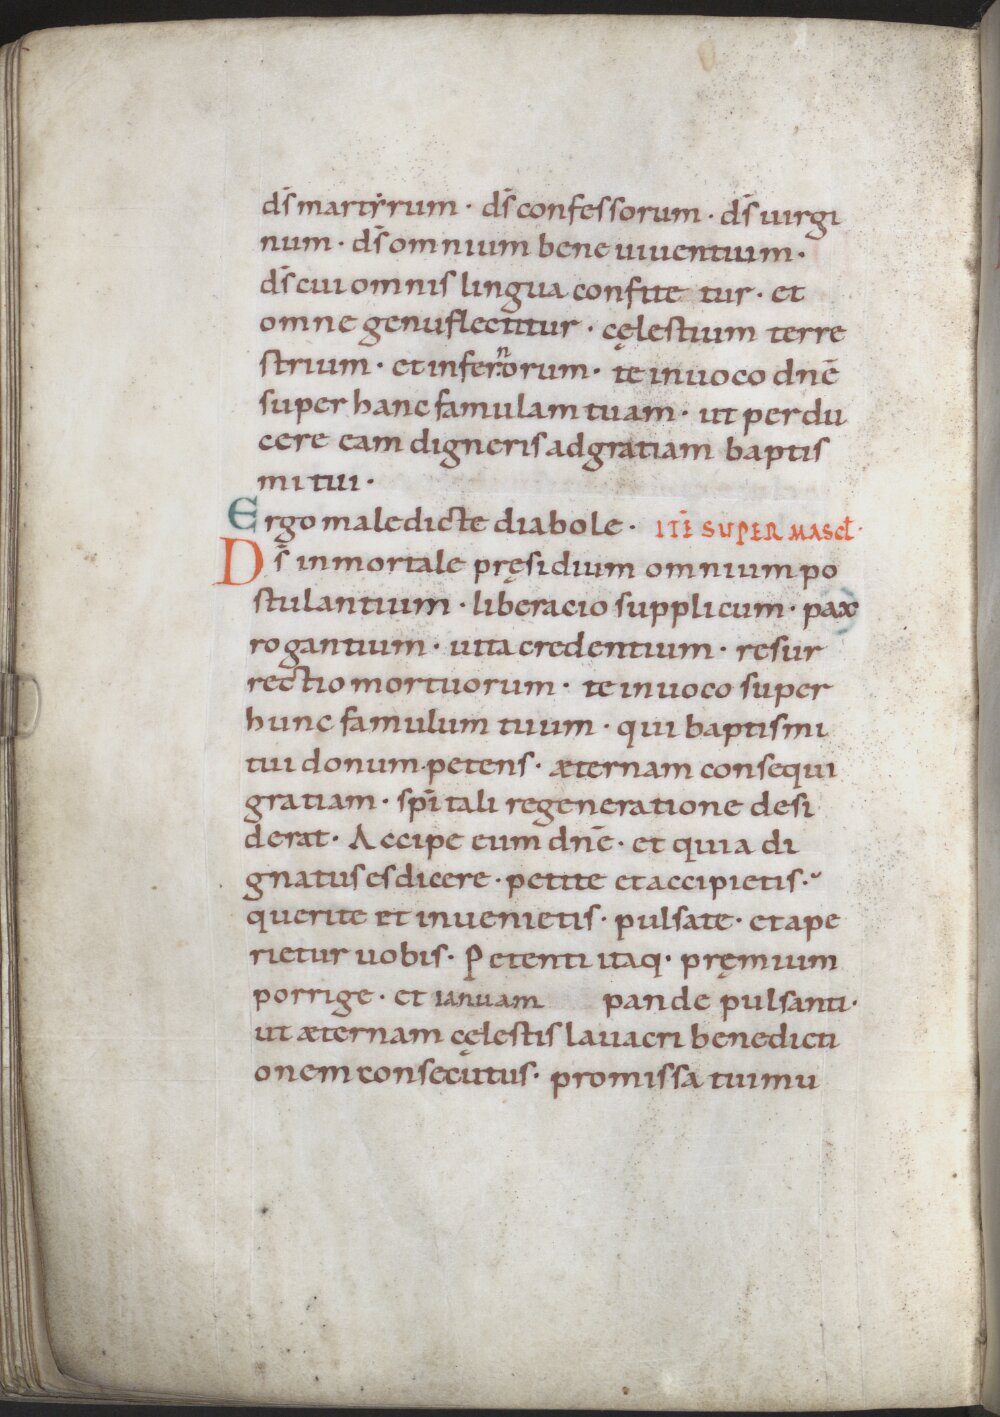 ds̄ martẏrum · ds̄ confessorum · ds̄ uirgi
num · ds̄ omnium bene uiuentium ·
ds̄ cui omnis lingua confite tur · et
omne genuflectitur · cęlestium terre
strium · et infernorum · te inuoco dnē
super hanc famulam tuam · ut perdu
cere eam digneris ad gratiam baptis
mi tui ·
Ergo maledicte diabole · ITĒ SUPER MASCL̄ ·
Ds̄ inmortale pręsidium omnium po
stulantium · liberacio supplicum · pax
rogantium · uita credentium · resur
rectio mortuorum · te inuoco super
hunc famulum tuum · qui baptismi
tui donum petens · æternam consequi
gratiam · sp̄i tali regeneratione desi
derat · Accipe eum dnē · et quia di
gnatus es dicere · petite et accipietis ·
querite et inuenietis · pulsate · et ape
rietur uobis · Petenti itaq· pręmium
porrige · et ianuam pande pulsanti ·
ut æternam cęlestis lauacri benedicti
onem consecutus · promissa tui mu